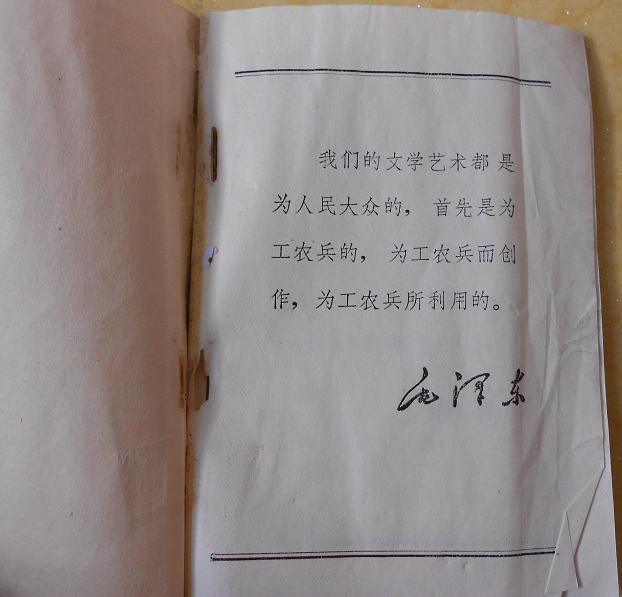 我们的文学艺术都是
为人民大众的，首先是为
工农兵的，为工农兵而创
作，为工农兵所利用的。
毛泽东